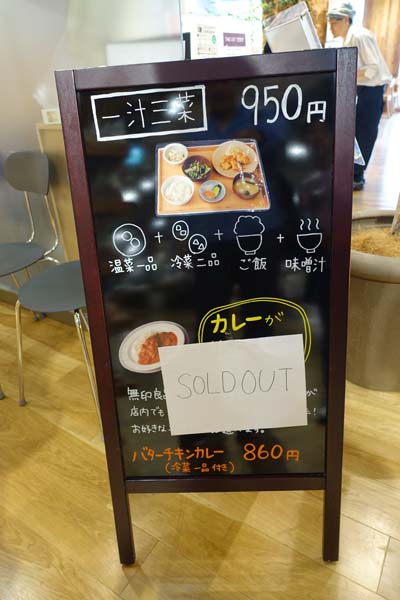 一汁三菜 950円
+ + +
温菜一品 冷菜二品 ご飯 味噌汁
カレーが
SOLD OUT
無印良
店内でも
お好きな
バターチキンカレー 860円
(冷菜一品付き)